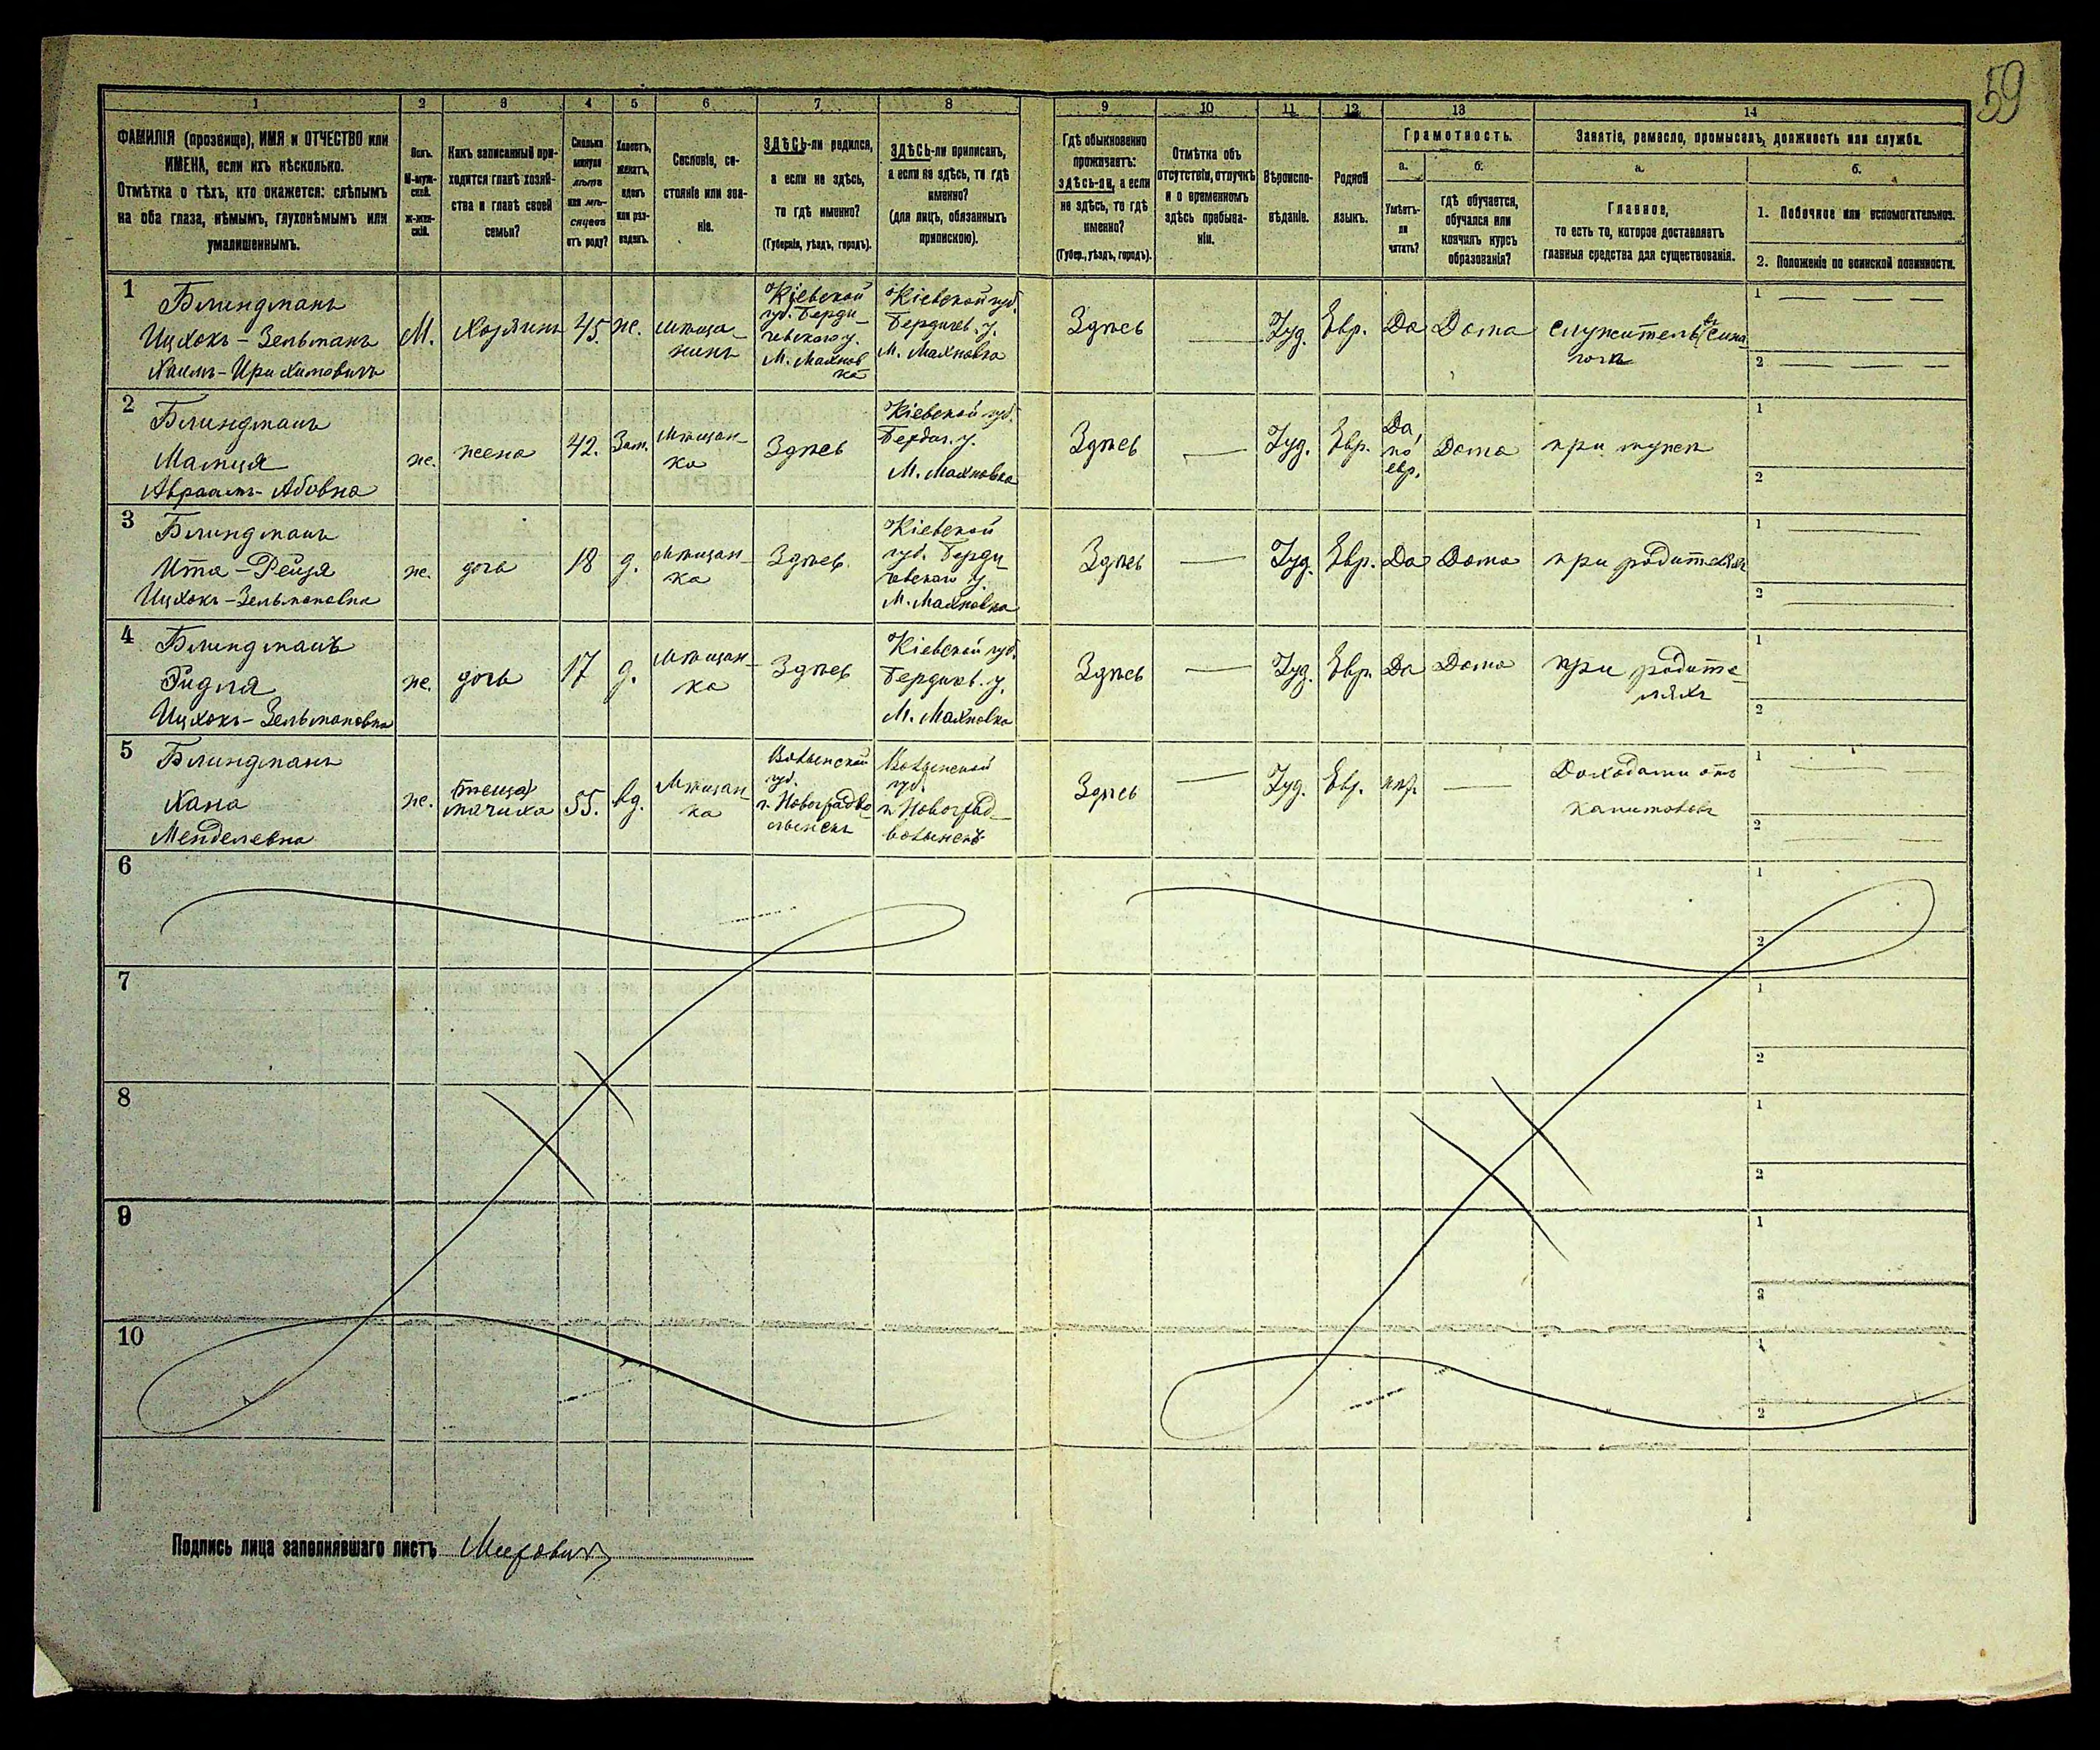 59
1 2 3 4 5 6 7 8 9 10 11 12 13 14
ФАМИЛІЯ (прозвище), ИМЯ и ОТЧЕСТВО или
ИМЕНА, если ихъ нѣсколько.
Отмѣтка о тѣхъ, кто окажется: слѣпымъ
на оба глаза, нѣмымъ, глухонѣмымъ или
умалишеннымъ.
Полъ.
М-муж-
ской.
Ж-жен-
скій.
Какъ записанный при-
ходится главѣ хозяй-
ства и главѣ своей
семьи?
Сколько
минуло
лѣтъ
или мѣ-
сяцевъ
отъ роду?
Холостъ,
женатъ,
вдовъ
или раз-
веденъ.
Сословіе, со-
стояніе или зва-
ніе.
ЗДѢСЬ-ли родился,
а если не здѣсь,
то гдѣ именно?
(Губернія, уѣздъ, городъ).
ЗДѢСЬ-ли приписанъ,
а если не здѣсь, то гдѣ
именно?
(для лицъ, обязанныхъ
припискою).
Гдѣ обыкновенно
проживаетъ:
здѣсь-ли, а если
не здѣсь, то гдѣ
именно?
(Губер., уѣздъ, городъ).
Отмѣтка объ
отсутствіи, отлучкѣ
и о временномъ
здѣсь пребыва-
ніи.
Вѣроиспо-
вѣданіе.
Родной
языкъ.
Грамотность.
а.
Умѣетъ-
ли
читать?
б.
гдѣ обучается,
обучался или
кончилъ курсъ
образованія?
Занятіе, ремесло, промыселъ, должность или служба.
а.
Главное,
то есть то, которое доставляетъ
главныя средства для существованія.
б.
1. Побочное или вспомогательное.
2. Положеніе по воинской повинности.
1
Блиндманъ
Ицхокъ-Зельманъ
Хаимъ-Ирихимовичъ
М.
Хозяинъ
45.
ж.
мѣща-
нинъ
Кіевской
губ. Берди-
чевскаго у.
М. Махнов
ка
Кіевской губ.
Бердичев. у.
М. Махновка
Здѣсь
Іуд.
Евр.
Да
Дома
служитель въ сина-
гогѣ
1
2
2
Блиндманъ
Малця
Авраамъ-Абовна
ж.
жена
42.
Зам.
Мѣщан-
ка
Здѣсь
Кіевской губ.
Бердич. у.
М. Махновка
Здѣсь
Іуд.
Евр.
Да,
по
евр.
Дома
при мужѣ
1
2
3
Блиндманъ
Ита-Рейзя
Ицхокъ-Зельмановна
ж.
дочь
18
д.
мѣщан-
ка
Здѣсь
Кіевской
губ. Берди
чевскаго у.
М. Махновка
Здѣсь
Іуд.
Евр.
Да
Дома
при родителяхъ
1
2
4
Блиндманъ
Ридля
Ицхокъ-Зельмановна
ж.
дочь
17
д.
Мѣщан-
ка
Здѣсь
Кіевской губ.
Бердичев. у.
М. Махновка
Здѣсь
Іуд.
Евр.
Да
Дома
при родите-
ляхъ
1
2
5
Блиндманъ
Хана
Менделевна
ж.
(теща)
мачиха
55.
вд.
Мѣщан-
ка
Волынской
губ.
г. Новоградво-
лынскъ
Волынской
губ.
г. Новоград-
волынскъ
Здѣсь
Іуд.
Евр.
нѣт.
Доходами отъ
капиталовъ
1
2
6
1
2
7
1
2
8
1
2
9
1
2
10
1
2
Подпись лица заполнявшаго листъ